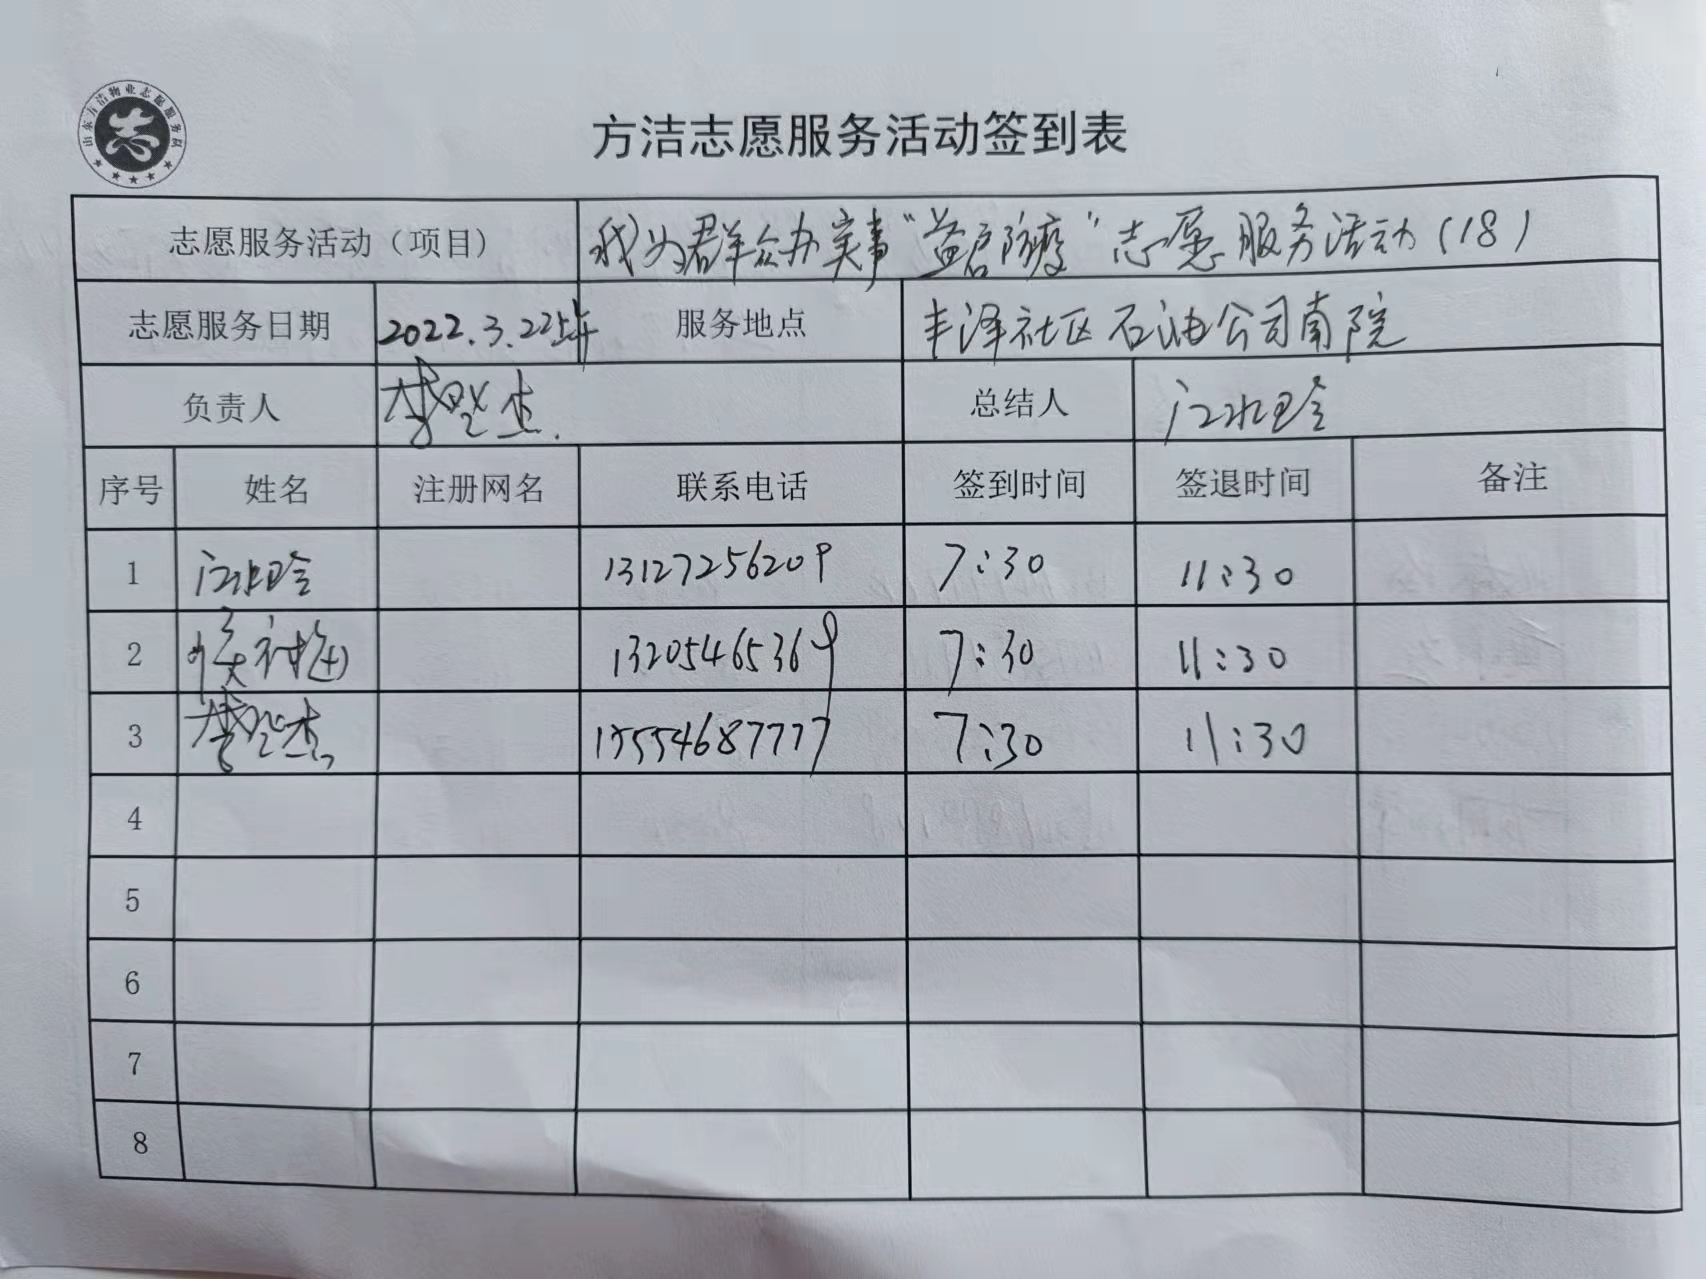 山东方洁物业志愿服务队
方洁志愿服务活动签到表
志愿服务活动（项目） 我为群众办实事“益启防疫”志愿服务活动(18)
志愿服务日期 2022.3.22上午 服务地点 丰泽社区石油公司南院
负责人 总结人
序号 姓名 注册网名 联系电话 签到时间 签退时间 备注
1 13127256209 7:30 11:30
2 13205465369 7:30 11:30
3 15554687777 7:30 11:30
4
5
6
7
8